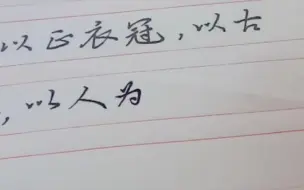 以正衣冠,以古
,以人为